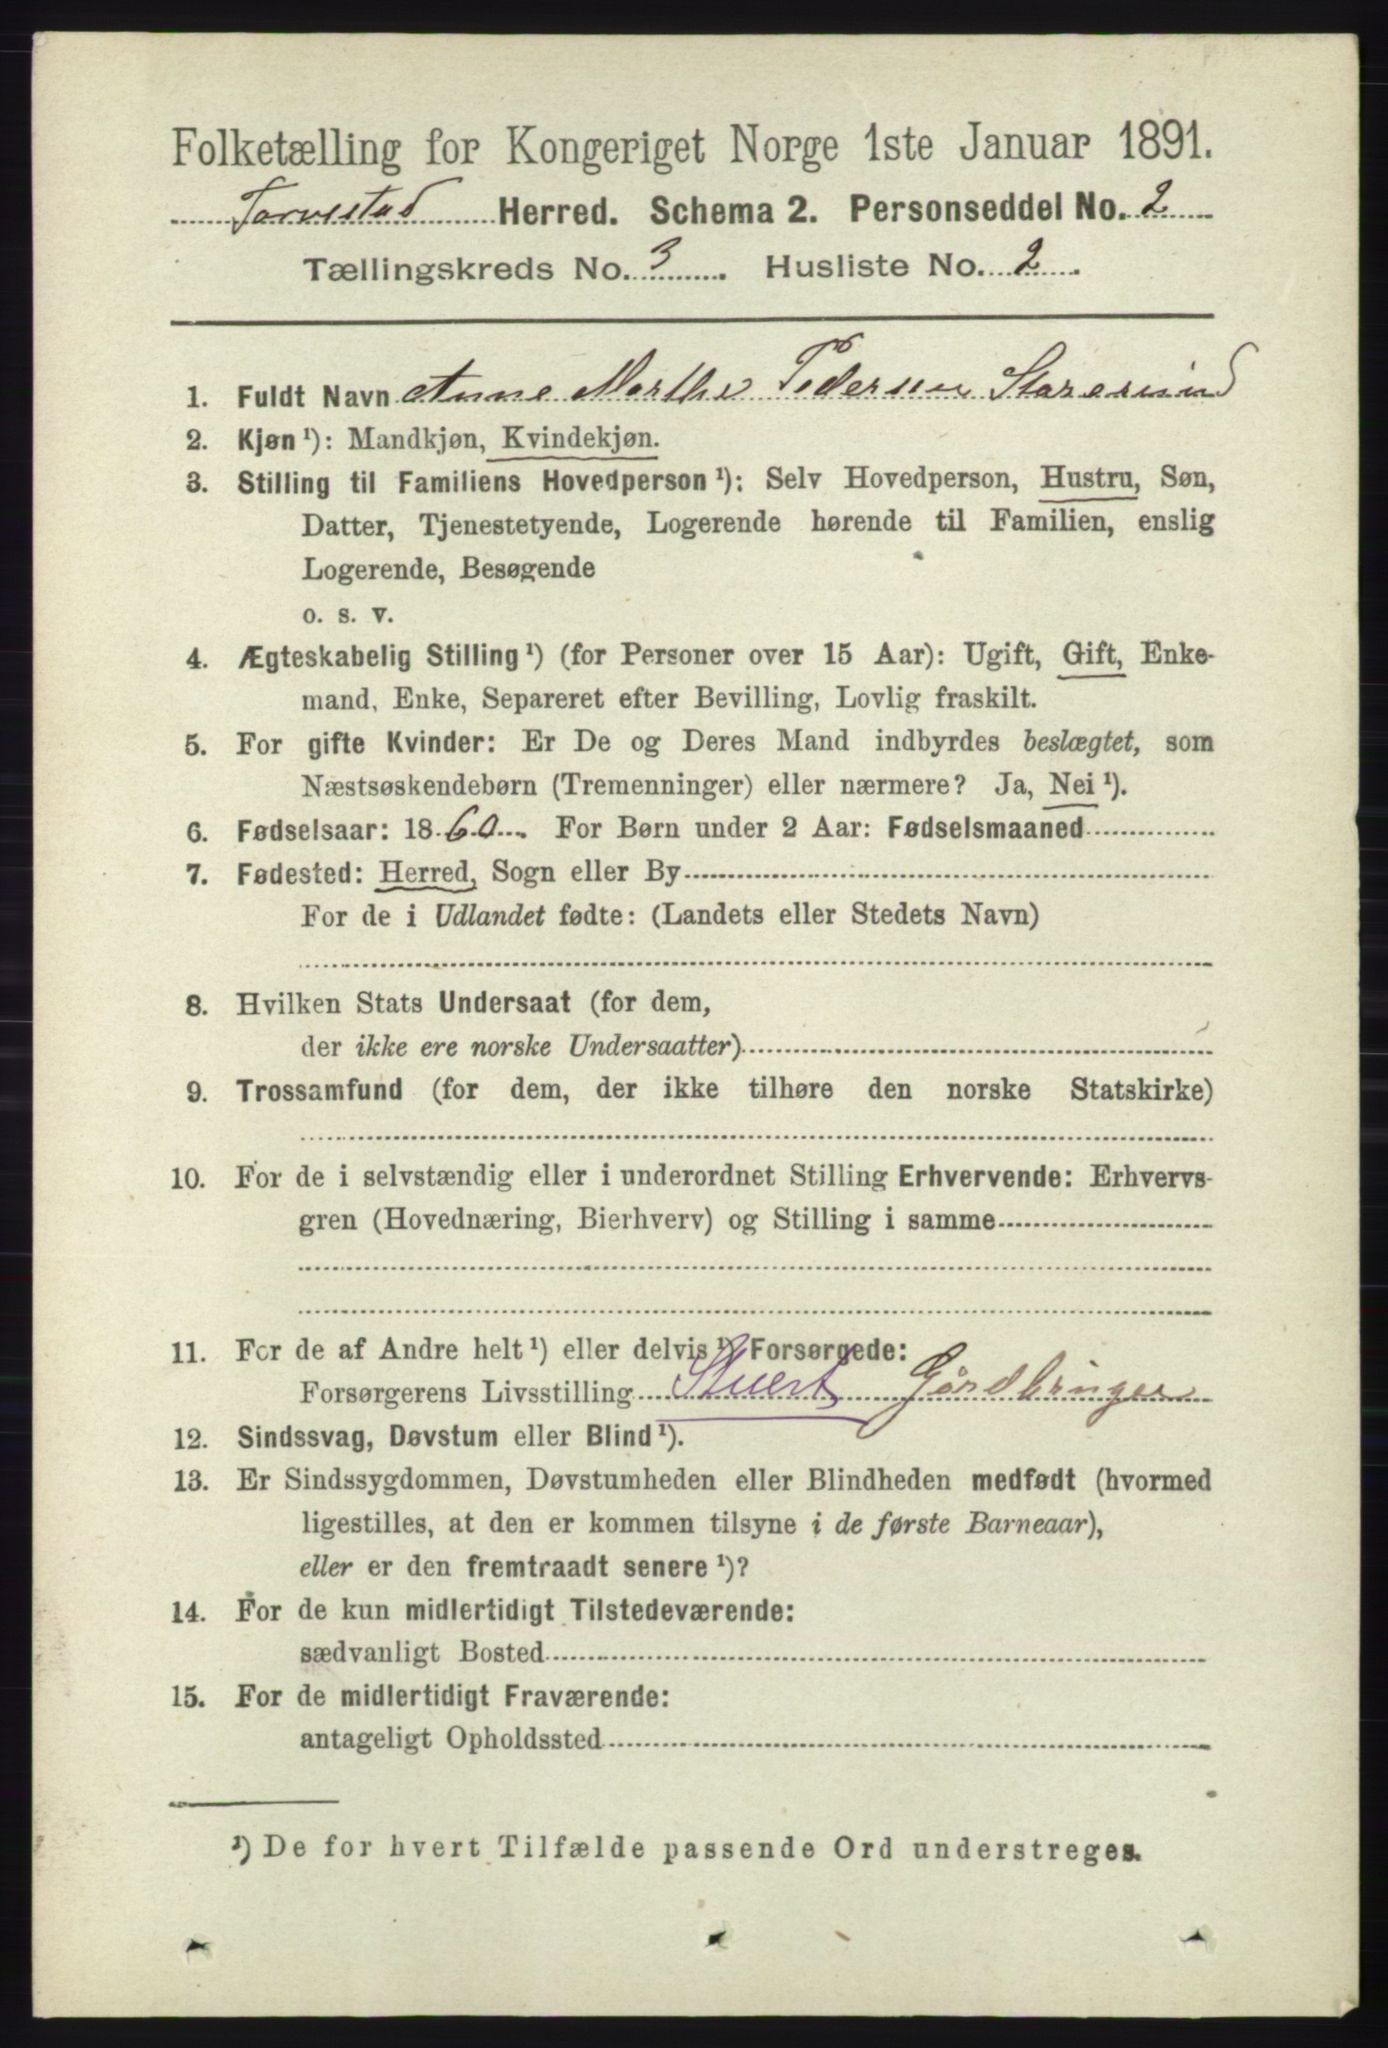 Folketælling for Kongeriget Norge 1ste Januar 1891.
Torvestad Herred. Schema 2. Personseddel No. 2
Tællingskreds No. 3. Husliste No. 2.
1. Fuldt Navn Anne Marthe Pedersen Storesund
2. Kjøn ¹): Mandkjøn, Kvindekjøn.
3. Stilling til Familiens Hovedperson ¹): Selv Hovedperson, Hustru, Søn,
Datter, Tjenestetyende, Logerende hørende til Familien, enslig
Logerende, Besøgende
o. s. v.
4. Ægteskabelig Stilling ¹) (for Personer over 15 Aar): Ugift, Gift, Enke-
mand, Enke, Separeret efter Bevilling, Lovlig fraskilt.
5. For gifte Kvinder: Er De og Deres Mand indbyrdes beslægtet, som
Næstsøskendebørn (Tremenninger) eller nærmere? Ja, Nei ¹).
6. Fødselsaar: 1860. For Børn under 2 Aar: Fødselsmaaned
7. Fødested: Herred, Sogn eller By
For de i Udlandet fødte: (Landets eller Stedets Navn)
8. Hvilken Stats Undersaat (for dem,
der ikke ere norske Undersaatter)
9. Trossamfund (for dem, der ikke tilhøre den norske Statskirke)
10. For de i selvstændig eller i underordnet Stilling Erhvervende: Erhvervs-
gren (Hovednæring, Bierhverv) og Stilling i samme
11. For de af Andre helt ¹) eller delvis ¹) Forsørgede:
Forsørgerens Livsstilling Gårdbruger
12. Sindssvag, Døvstum eller Blind ¹).
13. Er Sindssygdommen, Døvstumheden eller Blindheden medfødt (hvormed
ligestilles, at den er kommen tilsyne i de første Barneaar),
eller er den fremtraadt senere ¹)?
14. For de kun midlertidigt Tilstedeværende:
sædvanligt Bosted
15. For de midlertidigt Fraværende:
antageligt Opholdssted
¹) De for hvert Tilfælde passende Ord understreges.